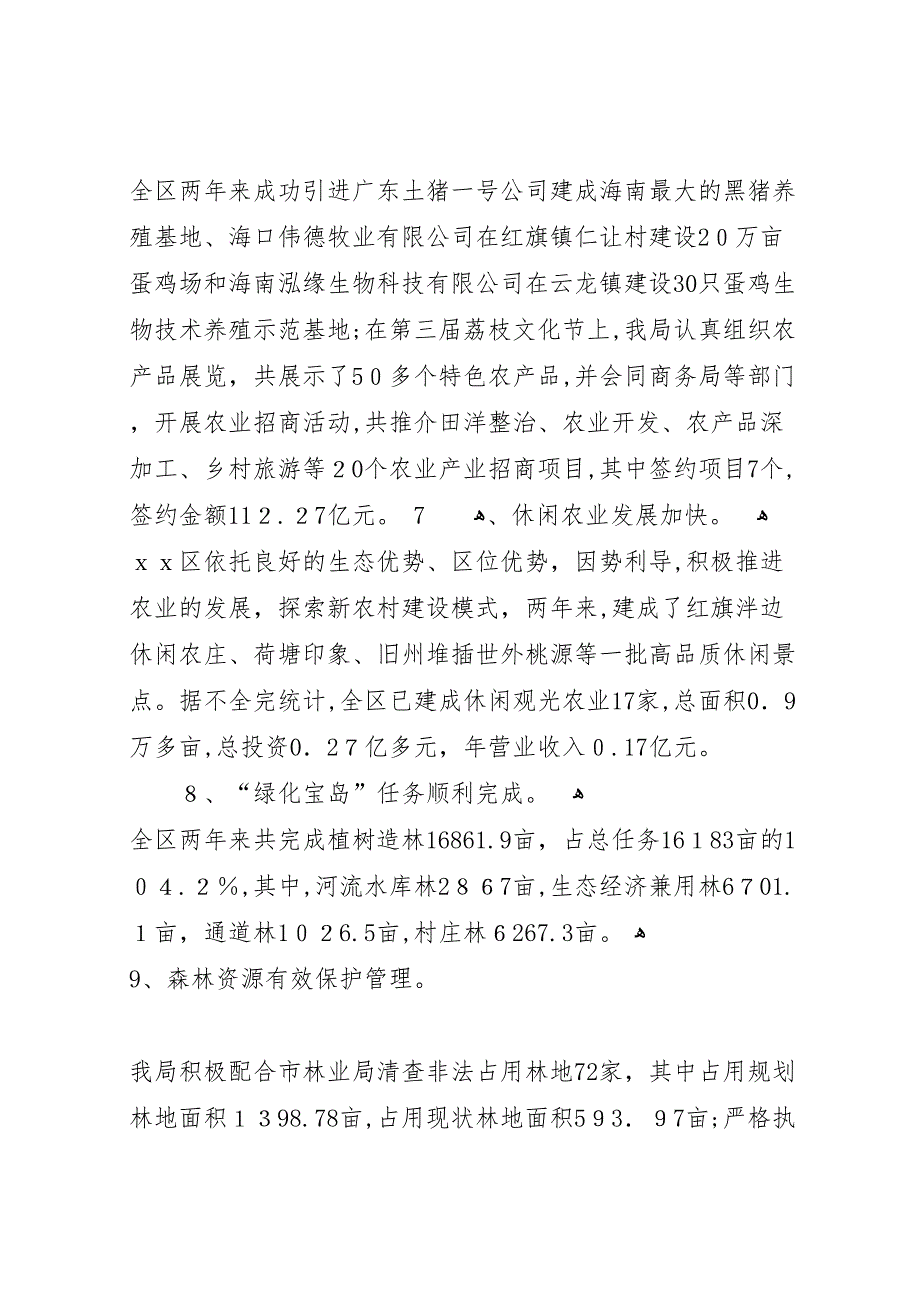 全区两年来成功引进广东土猪一号公司建成海南最大的黑猪养
殖基地、海口伟德牧业有限公司在红旗镇仁让村建设20万亩
蛋鸡场和海南泓缘生物科技有限公司在云龙镇建设30只蛋鸡生
物技术养殖示范基地;在第三届荔枝文化节上,我局认真组织农
产品展览，共展示了50多个特色农产品,并会同商务局等部门
，开展农业招商活动,共推介田洋整治、农业开发、农产品深
加工、乡村旅游等20个农业产业招商项目,其中签约项目7个,
签约金额112.27亿元。7 ﻬ、休闲农业发展加快。 ﻬ
ｘｘ区依托良好的生态优势、区位优势，因势利导,积极推进
农业的发展，探索新农村建设模式，两年来,建成了红旗泮边
休闲农庄、荷塘印象、旧州堆插世外桃源等一批高品质休闲景
点。据不全完统计,全区已建成休闲观光农业17家,总面积0．9
万多亩,总投资0．27亿多元，年营业收入0.17亿元。
8、“绿化宝岛”任务顺利完成。 ﻬ
全区两年来共完成植树造林16861.9亩，占总任务16183亩的1
04.2%,其中,河流水库林2867亩,生态经济兼用林6701.
1亩，通道林1026.5亩,村庄林6267.3亩。ﻬ
9、森林资源有效保护管理。
我局积极配合市林业局清查非法占用林地72家，其中占用规划
林地面积1398.78亩,占用现状林地面积593．97亩;严格执